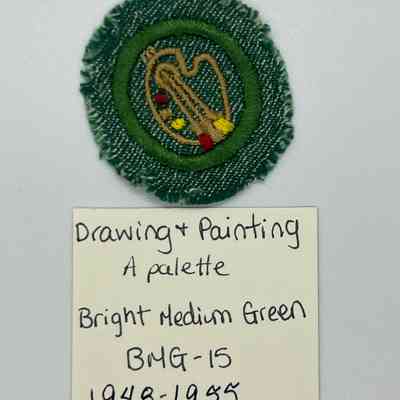 Drawing + Painting
A palette
Bright Medium Green
BMG-15
1948-1955